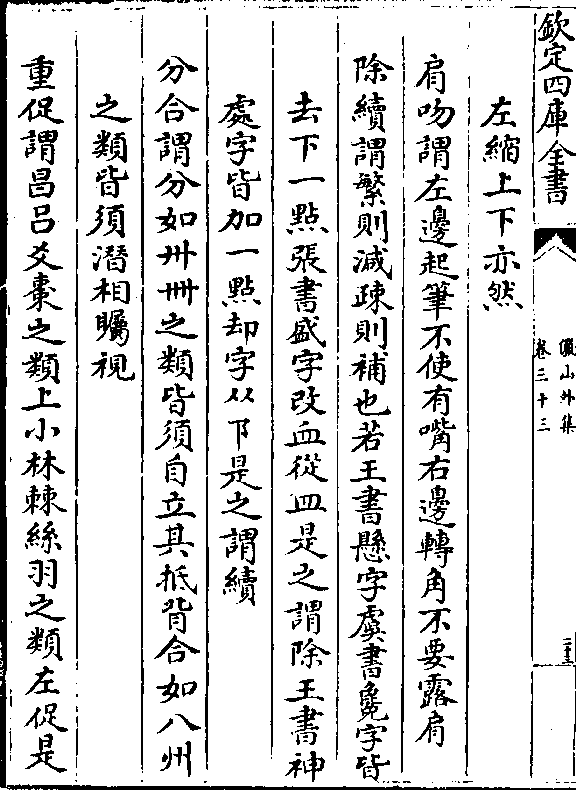 欽定四庫全書
儼山外集
卷三十三
左縮上下亦然
肩吻謂左邊起筆不使有嘴右邊轉角不要露肩
除續謂繁則減疎則補也若王書懸字虞書毚字皆
去下一點張書盛字改血從皿是之謂除王書神
處字皆加一點却字从卩是之謂續
分合謂分如卅卌之類皆須自立其抵背合如八州
之類皆須潛相矚視
重促謂昌吕爻棗之類上小林棘絲羽之類左促是